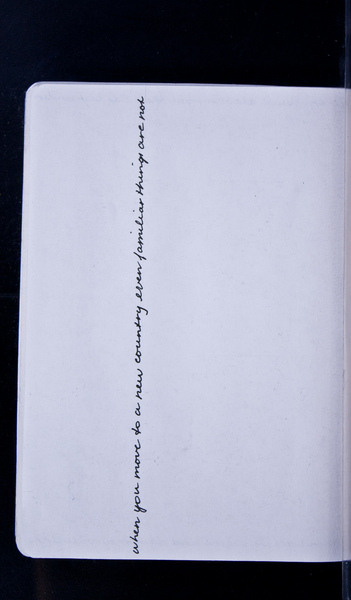 when you move to a new country even familiar things are not